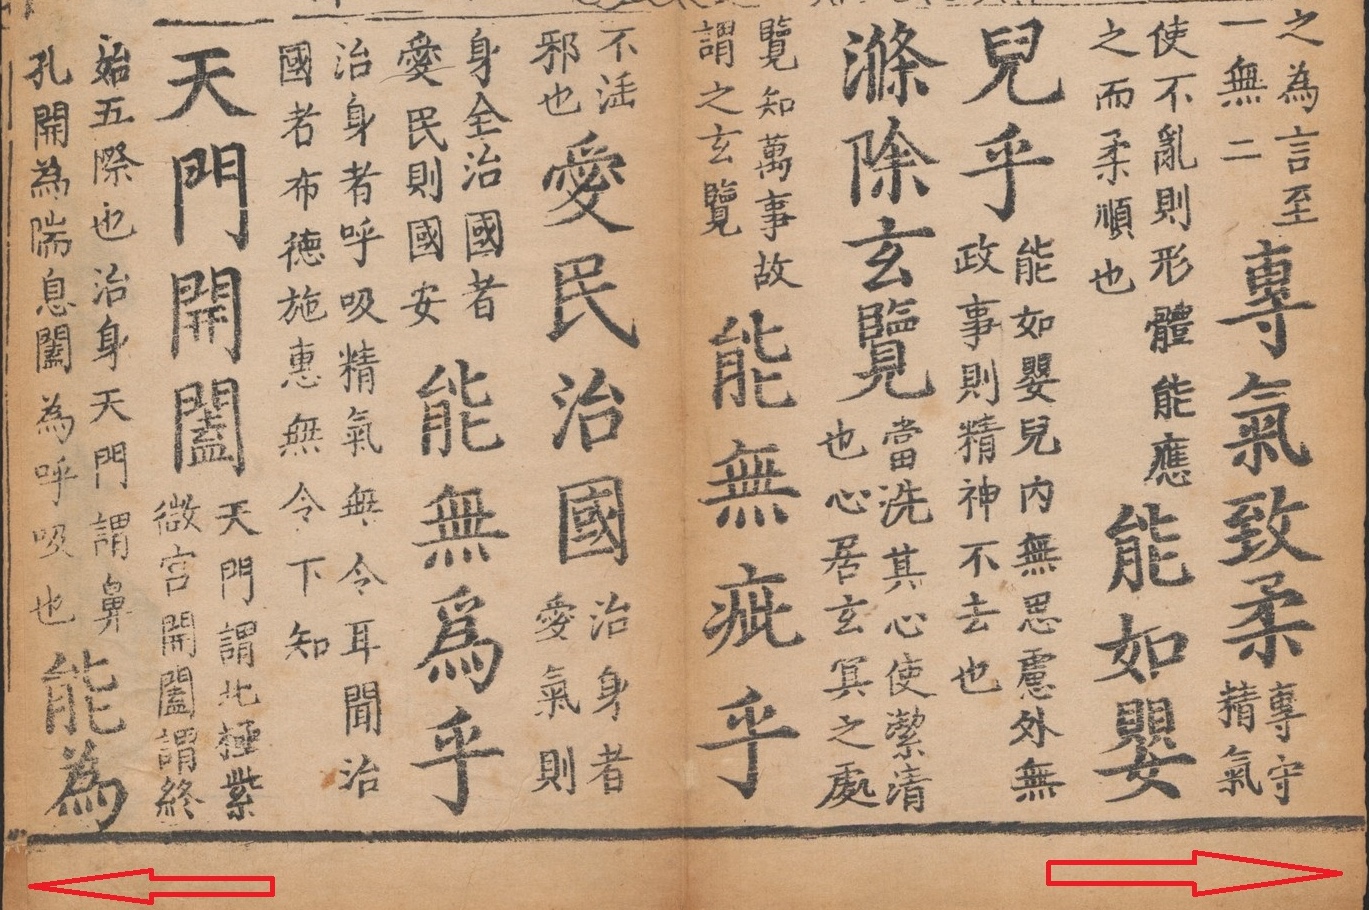 之為言至
一無二
專氣致柔
專守
精氣
使不亂則形體能應
之而柔順也
能如嬰
兒乎
能如嬰兒內無思慮外無
政事則精神不去也
滌除玄覽
當洗其心使潔清
也心居玄冥之處
覽知萬事故
謂之玄覽
能無疵乎
不滛
邪也
愛民治國
治身者
愛氣則
身全治國者
愛民則國安
能無爲乎
治身者呼吸精氣無令耳聞治
國者布德施惠無令下知
天門開闔
天門謂北極紫
微宮開闔謂終
始五際也治身天門謂鼻
孔開為喘息闔為呼吸也
能為